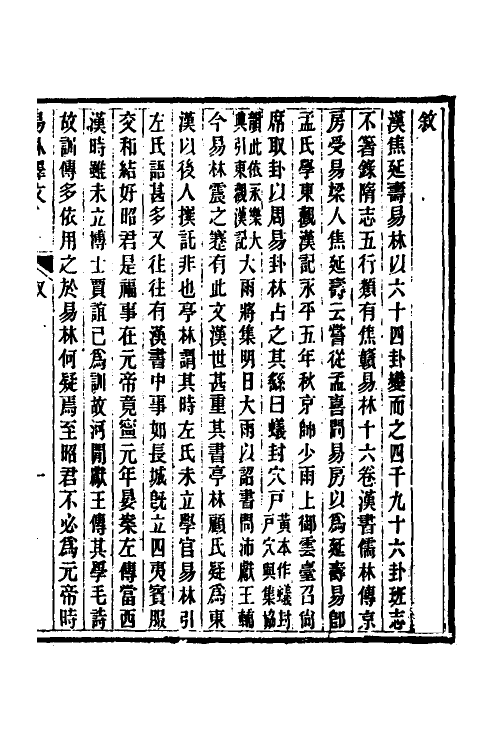 敘
漢焦延壽易林以六十四卦變而之四千九十六卦班志
不著錄隋志五行類有焦贛易林十六卷漢書儒林傳京
房受易梁人焦延壽云嘗從孟喜問易房以爲延壽易卽
孟氏學東觀漢記永平五年秋京師少雨上御雲臺召尙
席取卦以周易卦林占之其繇曰蟻封穴戶黃本作蟻封戶穴與集協
韻此依永樂大典引東觀漢記大雨將集明日大雨以詔書問沛獻王輔
今易林震之蹇有此文漢世甚重其書亭林顧氏疑爲東
漢以後人撰託非也亭林謂其時左氏未立學官易林引
左氏語甚多又往往有漢書中事如長城旣立四夷賓服
交和結好昭君是福事在元帝竟寧元年晏案左傳當西
漢時雖未立博士賈誼已爲訓故河閒獻王傳其學毛詩
故訓傳多依用之於易林何疑焉至昭君不必爲元帝時
易林釋文
敘
一